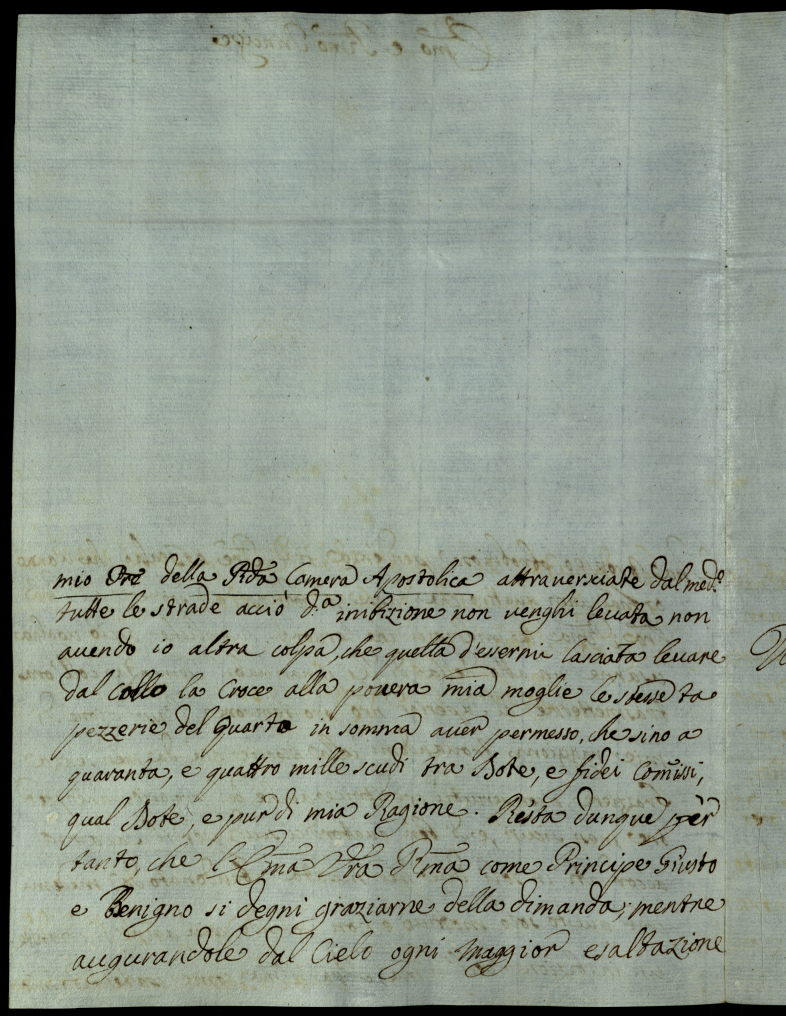 mio Pre della Rda Camera Apostolica attraversiate dal med.o
tutte le strade acciò d.a inibizione non venghi levata non
avendo io altra colpa, che quella d'essermi lasciata levare
dal collo la Croce alla povera mia moglie le stesse ta
pezzerie del quarto in somma aver permesso, che sino a
quaranta, e quattro mille scudi tra Dote, e fidei Comissi,
qual Dote, e pur di mia Ragione. Resta dunque per
tanto, che l'Ema Vra Rma come Principe Giusto
e Benigno si degni graziarne della dimanda; mentre
augurandole dal Cielo ogni maggior esaltazione